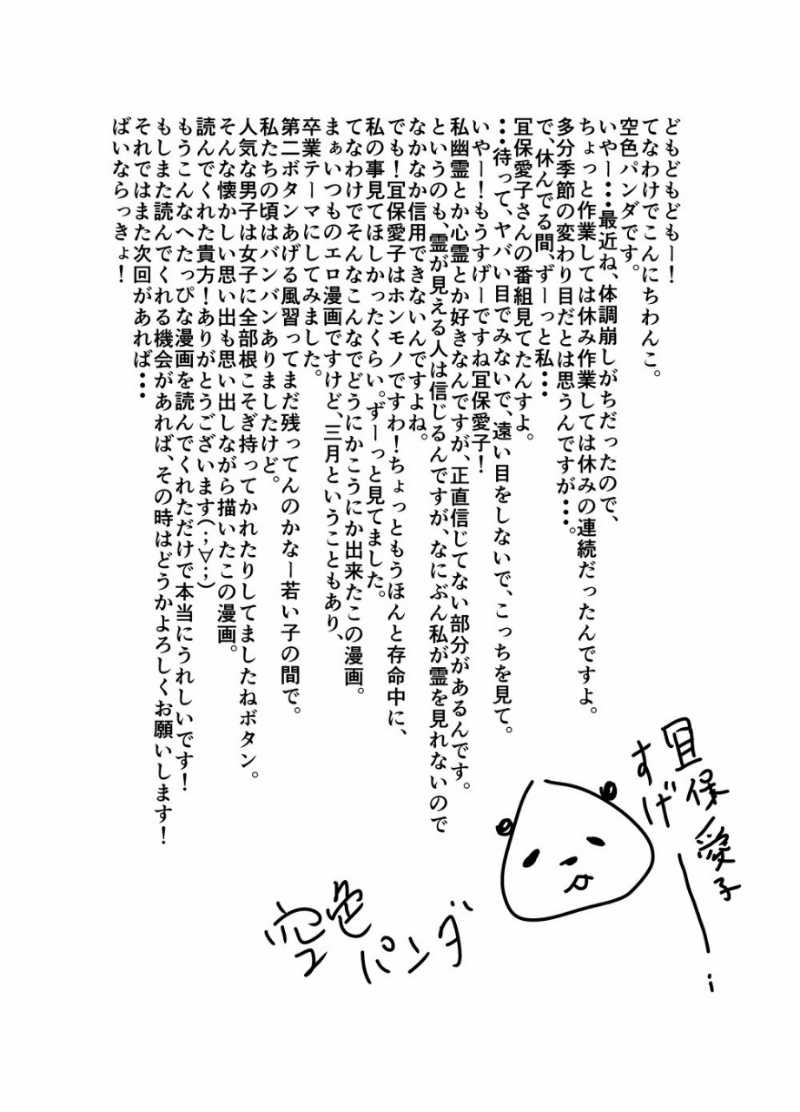 どもどもどもー！
てなわけでこんにちわんこ。
空色パンダです。
いやー・・・最近ね、体調崩しがちだったので、
ちょっと作業しては休み作業しては休みの連続だったんですよ。
多分季節の変わり目だとは思うんですが・・・。
で、休んでる間、ずーっと私・・・
冝保愛子さんの番組見てたんすよ。
・・・待って、ヤバい目でみないで、遠い目をしないで、こっちを見て。
いやー！もうすげーですね冝保愛子！
私幽霊とか心霊とか好きなんですが、正直信じてない部分があるんです。
というのも、霊が見える人は信じるんですが、なにぶん私が霊を見れないので
なかなか信用できないんですよね。
でも！冝保愛子はホンモノですわ！ちょっともうほんと存命中に、
私の事見てほしかったくらい。ずーっと見てました。
てなわけでそんなこんなでどうにかこうにか出来たこの漫画。
まぁいつものエロ漫画ですけど、三月ということもあり、
卒業テーマにしてみました。
第二ボタンあげる風習ってまだ残ってんのかなー若い子の間で。
私たちの頃はバンバンありましたけど。
人気な男子は女子に全部根こそぎ持ってかれたりしてましたねボタン。
そんな懐かしい思い出も思い出しながら描いたこの漫画。
読んでくれた貴方！ありがとうございます(；∀；)
もうこんなへたっぴな漫画を読んでくれただけで本当にうれしいです！
もしまた読んでくれる機会があれば、その時はどうかよろしくお願いします！
それではまた次回があれば・・・
ばいならっきょ！
冝保愛子
すげー！
空色
パンダ